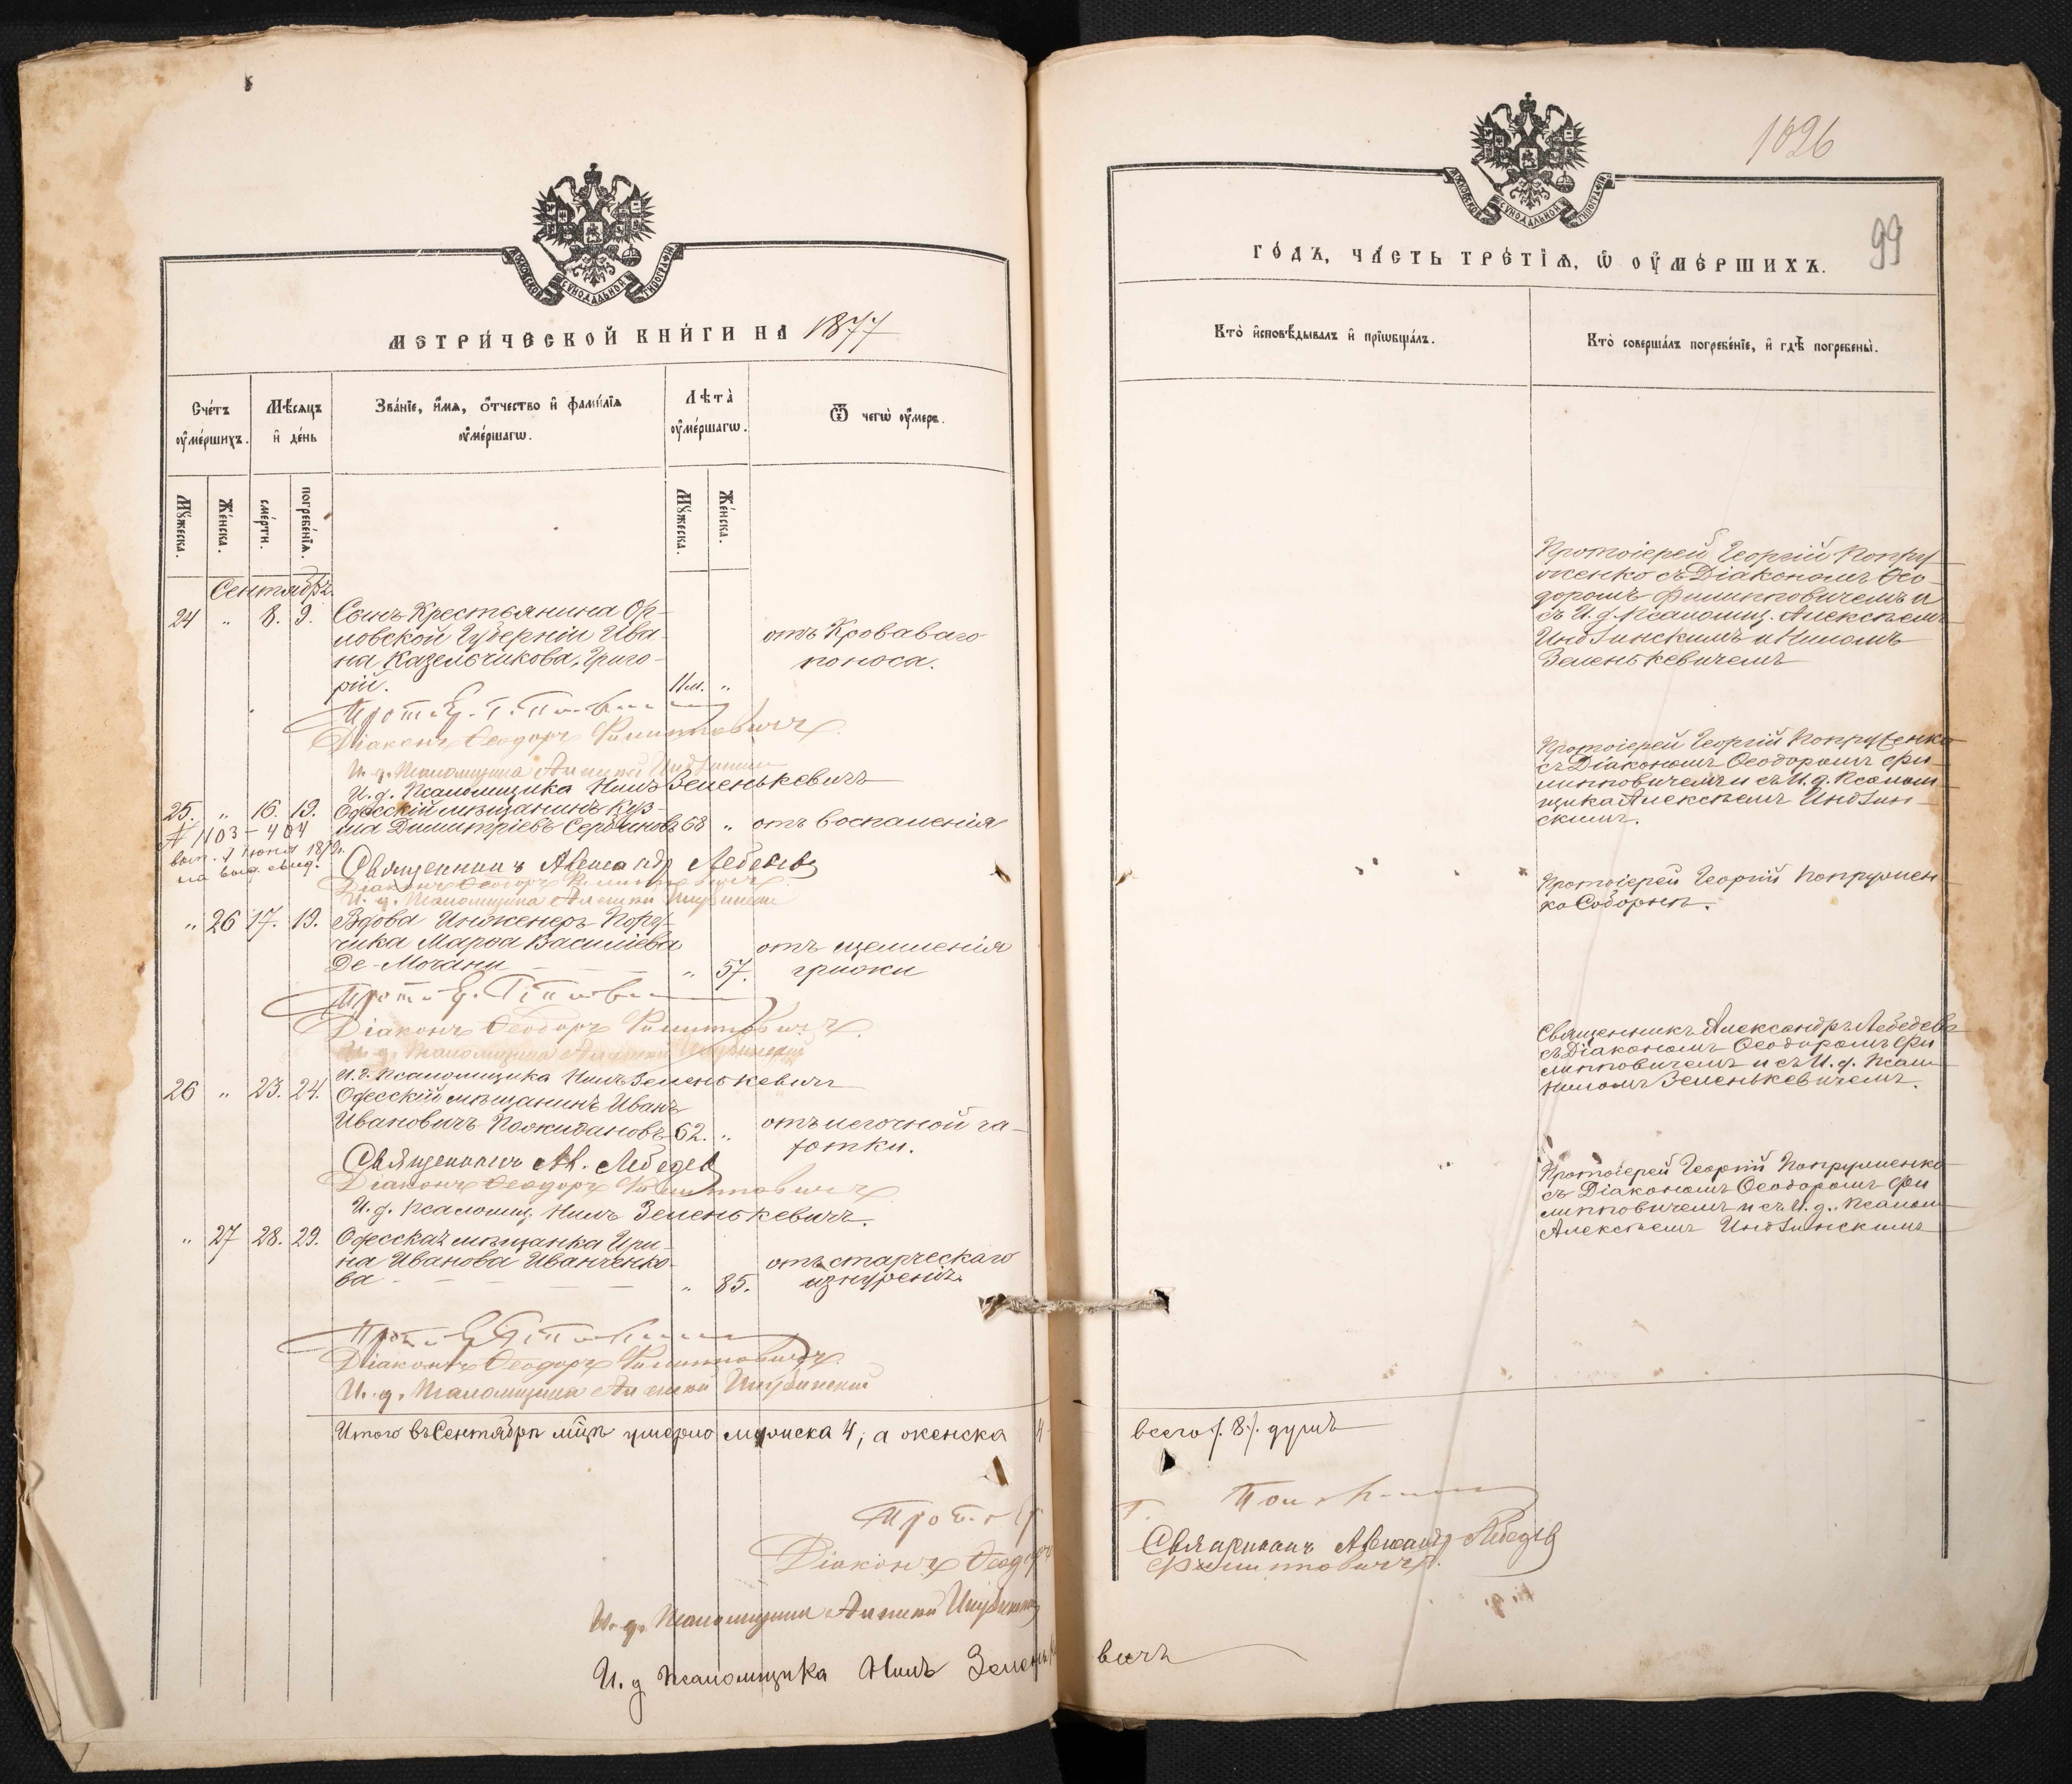 МОСКОВСКОЙ СѴНОДАЛЬНОЙ ТИПОГРАФІИ
МЕТРИ́ЧЕСКОЙ КНИ́ГИ НА 1877
Сче́тъ ᲂу҆ме́ршихъ.
Мѣ́сяцъ и҆ де́нь
Зва́нїе, и҆́мѧ, ѻ҆́тчество и҆ фами́лїѧ ᲂу҆ме́ршагѡ.
Лѣ́та ᲂу҆ме́ршагѡ.
Ѿ чегѡ̀ ᲂу҆́меръ.
Мꙋ́жеска.
Же́нска.
сме́рти.
погребе́нїѧ.
Мꙋ́жеска.
Же́нска.
Сентябрь.
24 " 8. 9. Сынъ Крестьянина Ор-
ловской Губерніи Ива-
на Казельчикова, Григо-
рій. 11м. "
отъ Кроваваго
поноса.
Діаконъ Ѳеодоръ Филипповичъ
И. д. Псаломщика Алексѣй
И. д. Псаломщика Нилъ Зеленькевичъ
25. " 16. 19. Одесскій мѣщанинъ Куз-
ма Димитріевъ Сербиновъ 68 " отъ воспаленія
№ 1103-404
вып. 7 Іюня
на выд. свид.
Священникъ Александръ Лебедевъ
Діаконъ Ѳеодоръ Филипповичъ
И. д. Псаломщика Алексѣй
" 26 17. 19. Вдова Инженеръ Пору-
чика Марѳа Василіева
Де-Мочани " 57.
отъ щемленія
грыжи
Діаконъ Ѳеодоръ Филипповичъ
И. д. Псаломщика Алексѣй
И. д. Псаломщика Нилъ Зеленькевичъ
26 " 23. 24. Одесскій мѣщанинъ Иванъ
Ивановичъ Пожидановъ 62. "
отъ легочной ча-
хотки.
Священникъ Ал. Лебедевъ
Діаконъ Ѳеодоръ Филипповичъ
И. д. Псаломщ. Нилъ Зеленькевичъ.
" 27 28. 29. Одесская мѣщанка Ири-
на Иванова Иванченко-
ва " 85.
отъ старческаго
изнуренія.
Діаконъ Ѳеодоръ Филипповичъ
И. д. Псаломщика Алексѣй
Итого въ Сентябрѣ м̃цѣ умерло мужска 4, а женска 4
Діаконъ Ѳеодоръ
И. д. Псаломщика Алексѣй
И. д. Псаломщика Нилъ Зеленьке
1026
99
МОСКОВСКОЙ СѴНОДАЛЬНОЙ ТИПОГРАФІИ
ГО́ДЪ, ЧА́СТЬ ТРЕ́ТІѦ, Ѡ҆ ОУ҆МЕ́РШИХЪ.
Кто̀ и҆сповѣ́дывалъ и҆ прїѡбща́лъ.
Кто̀ соверша́лъ погребе́нїе, и҆ гдѣ̀ погребены̀.
Протоіерей Георгій Попру-
женко съ Діакономъ Ѳео-
доромъ Филипповичемъ и
съ И. д. Псаломщ. Алексѣемъ
и Ниломъ
Зеленькевичемъ
Протоіерей Георгій Попруженко
съ Діакономъ Ѳеодоромъ Фи-
липповичемъ и съ И. д. Псалом-
щика Алексѣемъ
скимъ.
Протоіерей Георгій Попружен-
ко Соборнѣ.
Священникъ Александръ Лебедевъ
съ Діакономъ Ѳеодоромъ Фи
липповичемъ и съ И. д. Псалм
Ниломъ Зеленькевичемъ.
Протоіерей Георгій Попруженко
съ Діакономъ Ѳеодоромъ Фи
липповичемъ и съ И. д. Псалом
Алексѣемъ
всего /.8./ душъ
Священникъ Александръ Лебедевъ
Филипповичъ.
вичъ